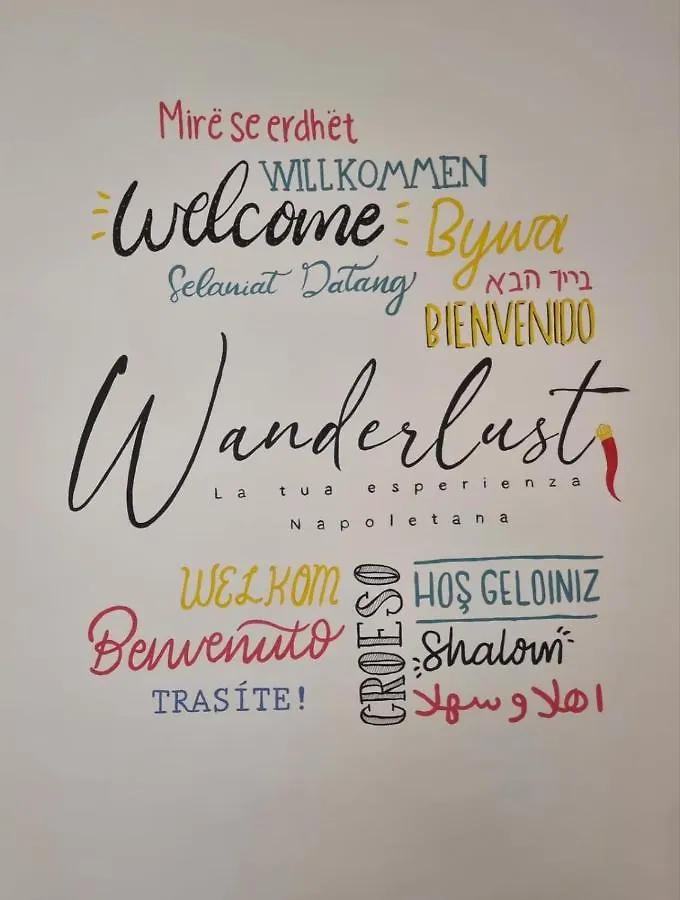 Mirë se erdhët
WILLKOMMEN
Welcome
Bywa
Selamat Datang
ברוך הבא
BIENVENIDO
Wanderlust
La tua esperienza
Napoletana
WELKOM
CROESO
HOŞ GELOINIZ
Benvenuto
Shalom
TRASÍTE!
اهلا و سهلا